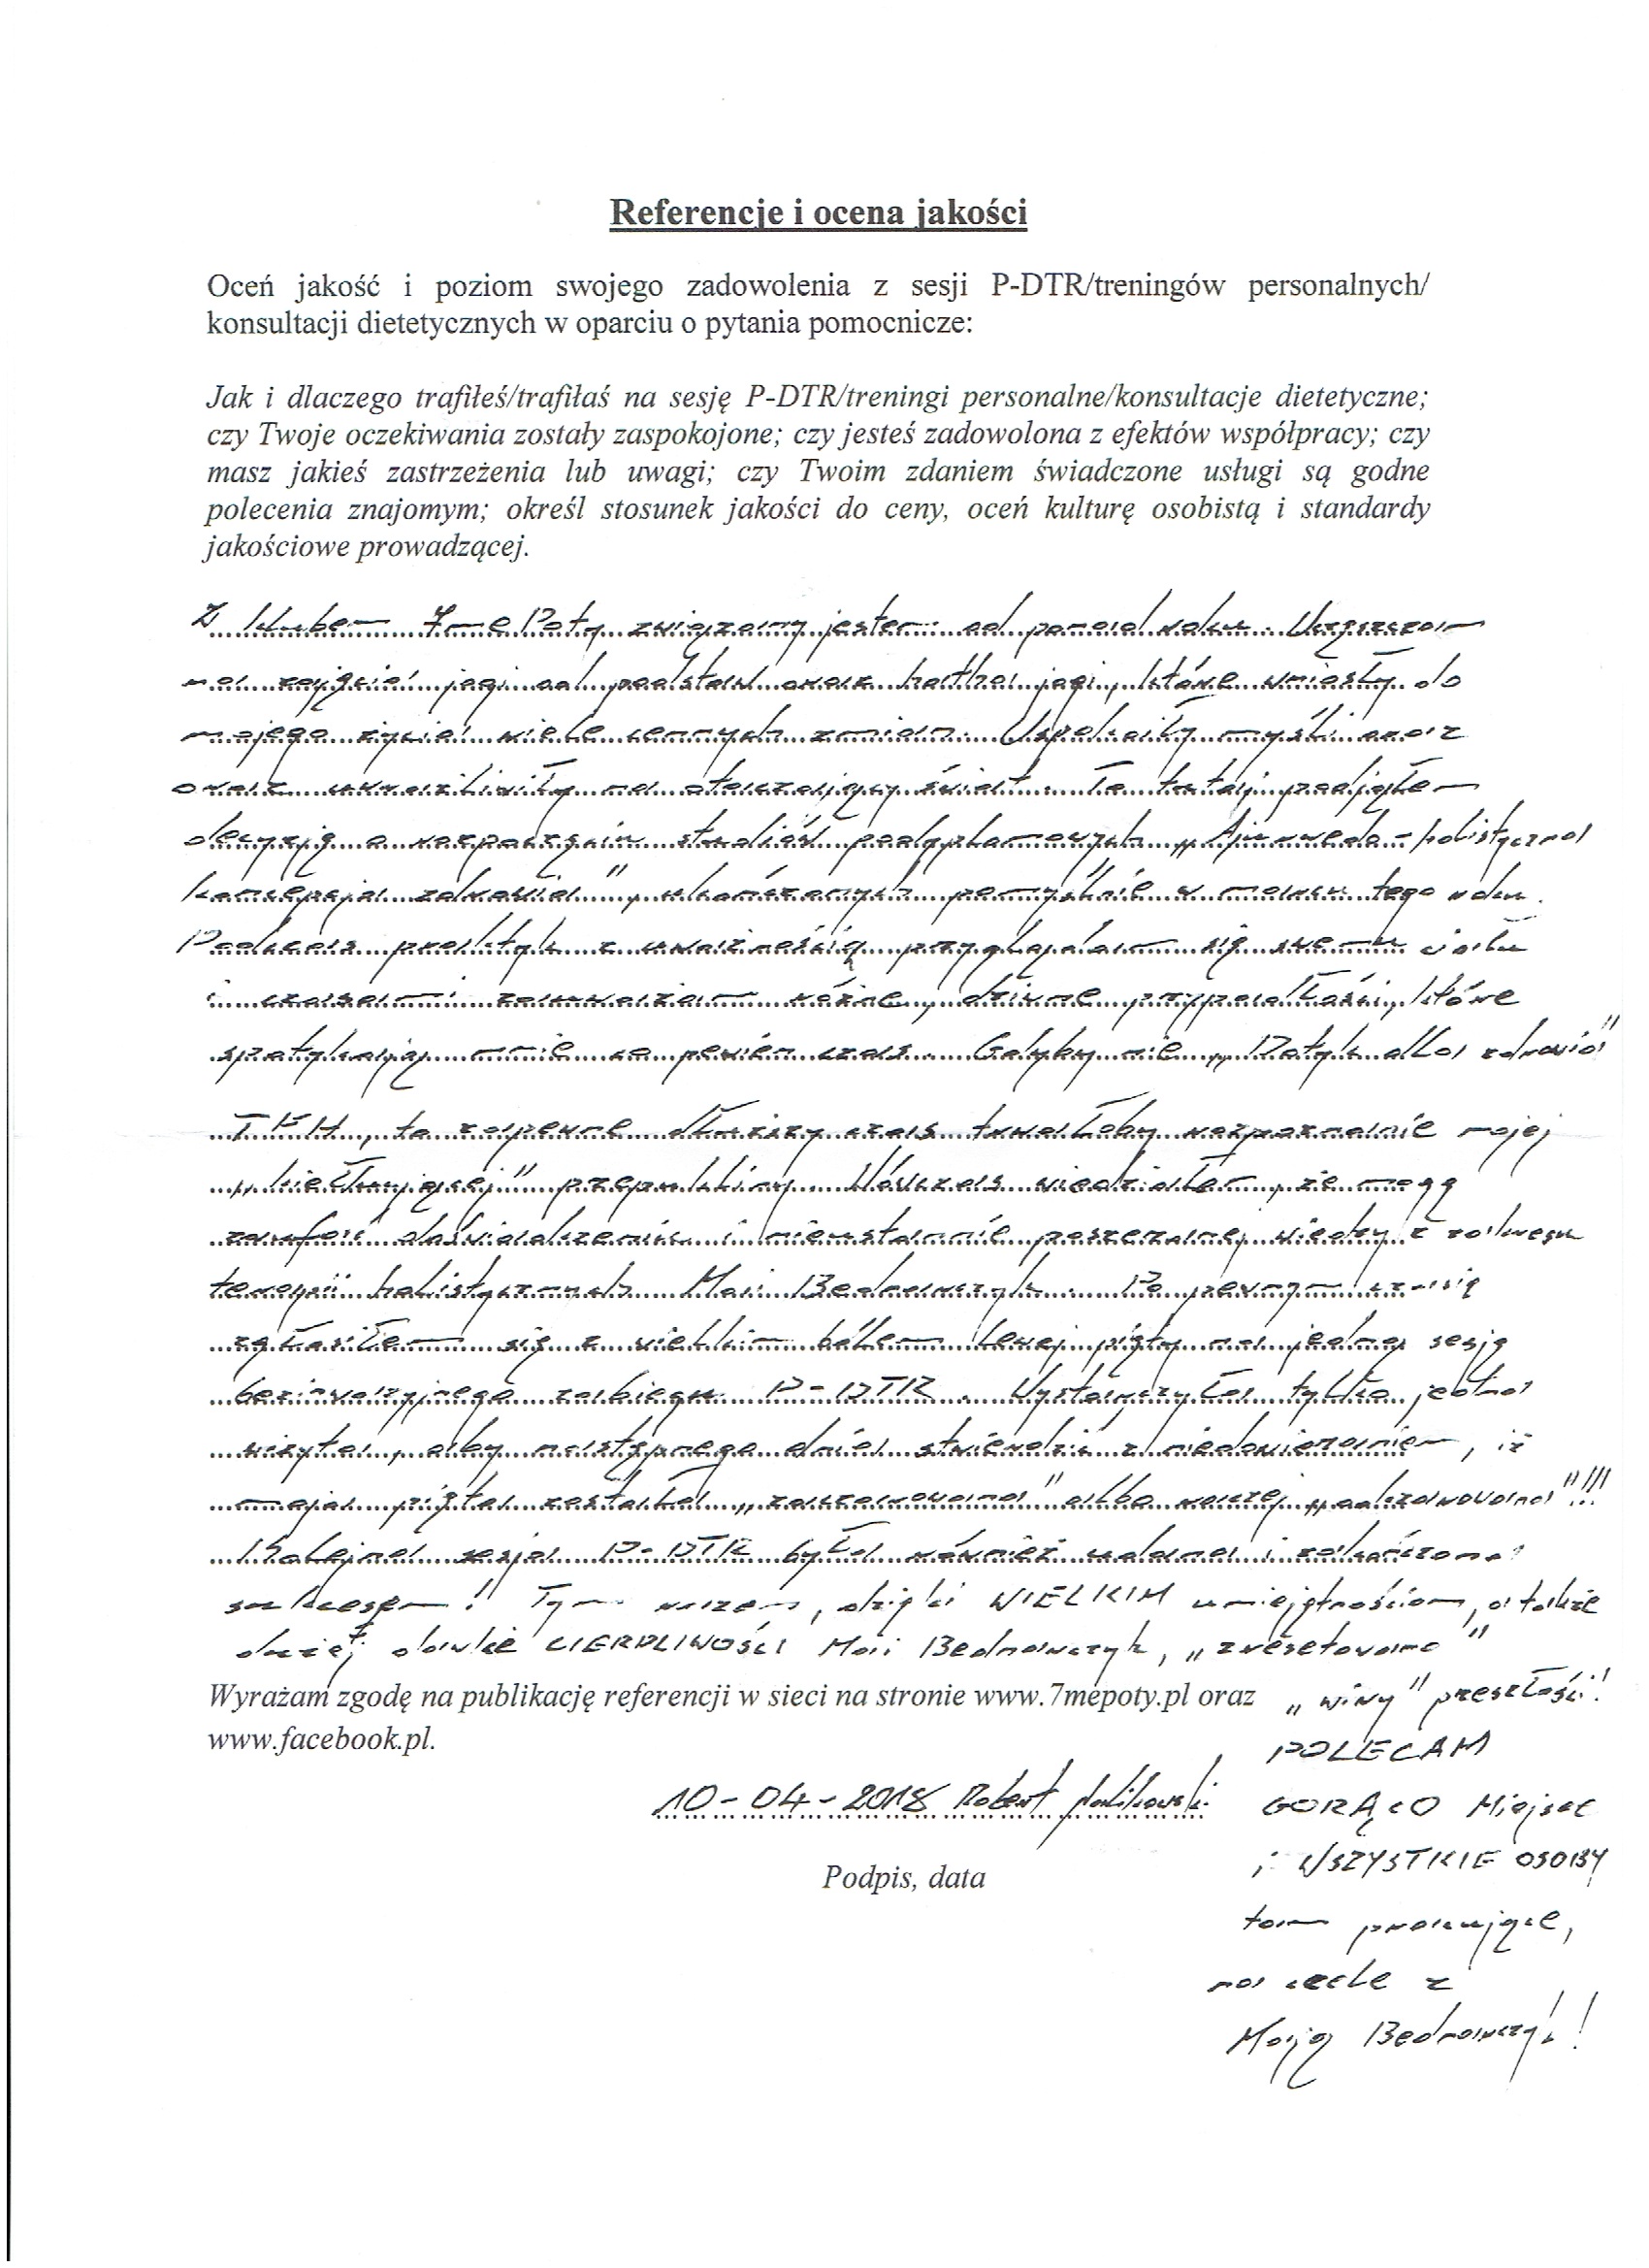 Referencje i ocena jakości
Oceń jakość i poziom swojego zadowolenia z sesji P-DTR/treningów personalnych/
konsultacji dietetycznych w oparciu o pytania pomocnicze:
Jak i dlaczego trafiłeś/trafiłaś na sesję P-DTR/treningi personalne/konsultacje dietetyczne;
czy Twoje oczekiwania zostały zaspokojone; czy jesteś zadowolona z efektów współpracy; czy
masz jakieś zastrzeżenia lub uwagi; czy Twoim zdaniem świadczone usługi są godne
polecenia znajomym; określ stosunek jakości do ceny, oceń kulturę osobistą i standardy
jakościowe prowadzącej.
Z klubem 7me Poty związany jestem od ponad roku. Uczęszczam
na zajęcia jogi od podstaw oraz hatha jogi, które wniosły do
mojego życia wiele cennych zmian. Uspokoiły myśli oraz
oraz uwrażliwiły na otaczający świat. To tutaj podjąłem
decyzję o rozpoczęciu studiów podyplomowych „Ajurweda - holistyczna
koncepcja zdrowia", ukończonych pomyślnie w marcu tego roku.
Podczas praktyk z uważnością przyglądam się swemu ciału
i czasami zauważam różne, dziwne przypadłości, które
spotykają mnie co pewien czas. Gdyby nie „Dotyk dla zdrowia"
TFH, to zapewne dłuższy czas trwałoby rozpoznanie mojej
„kiełkującej" przepukliny. Wówczas wiedziałem, że mogę
zaufać doświadczeniu i nieustannie poszerzanej wiedzy z zakresu
terapii holistycznych Mai Bednarczyk. Po pewnym czasie
zgłosiłem się z wielkim bólem lewej pięty na jedną sesję
bezinwazyjnego zabiegu P-DTR. Wystarczyła tylko jedna
wizyta, aby następnego dnia stwierdzić z niedowierzaniem, iż
moja pięta została „zaczarowana" albo raczej „odczarowana"!!!
Kolejna sesja P-DTR była również udana i zakończona
sukcesem! Tym razem, dzięki WIELKIM umiejętnościom, a także
dużej dawke CIERPLIWOŚCI Mai Bednarczyk, „zresetowano"
„winy" przeszłości!
Wyrażam zgodę na publikację referencji w sieci na stronie www.7mepoty.pl oraz
www.facebook.pl.
POLECAM
GORĄCO Miejsce
i WSZYSTKIE OSOBY
tam pracujące,
na czele z
Mają Bednarczyk!
10-04-2018 Robert
Podpis, data